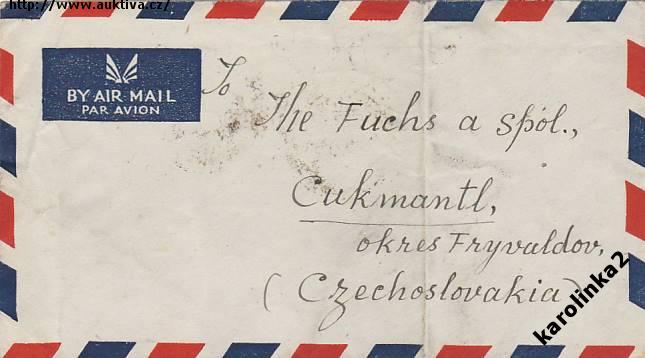 http://www.auktiva.cz/
BY AIR MAIL
PAR AVION
To
The Fuchs a spól.,
Cukmantl,
okres Fryvaldov,
(Czechoslovakia)
karolinka2